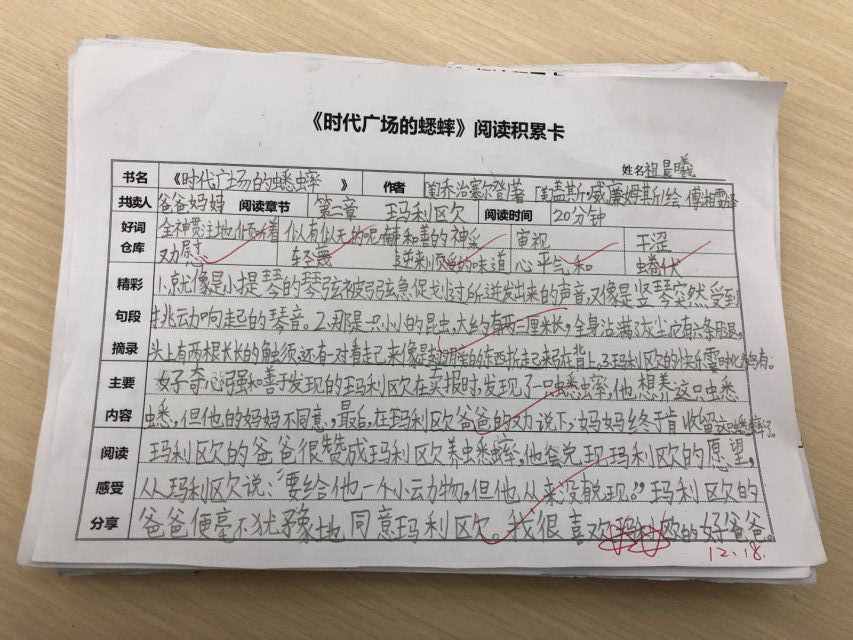 《时代广场的蟋蟀》阅读积累卡
姓名 祖晨曦
书名 《时代广场的蟋蟀 》 作者 [美]乔治塞尔登/著 [美]盖斯·威廉姆斯/绘 傅湘雯/译
共读人 爸爸妈妈 阅读章节 第二章 玛利欧 阅读时间 20分钟
好词 全神贯注地倾听着 似有似无的呢喃 和善的神采 审视 干涩
仓库 劝尉 轻蔑 逆来顺受的味道 心平气和 蜷伏
精彩 1.就像是小提琴的琴弦被弓弦急促划过所迸发出来的声音,又像是竖琴突然受到
句段 挑动响起的琴音。2.那是一只小小的昆虫,大约有两三厘米长,全身沾满了灰尘它有六条用腿,
摘录 头上有两根长长的触须,还有一对看起来像是翅膀的东西抬起来弓在背上。3.玛利欧的快乐霎时化为乌有。
主要 好奇心强和善于发现的玛利欧在卖报时,发现了一只蟋蟀,他想养这只蟋
内容 蟀,但他的妈妈不同意,最后,在玛利欧爸爸的劝说下,妈妈终于肯收留这只蟋蟀了。
阅读 玛利欧的爸爸很赞成玛利欧养蟋蟀,他会兑现玛利欧的愿望,
感受 从玛利欧说:“要给他一个小动物,但他从来没兑现。”玛利欧的
分享 爸爸便毫不犹豫地同意玛利欧。我很喜欢玛利欧的好爸爸。
12.18.